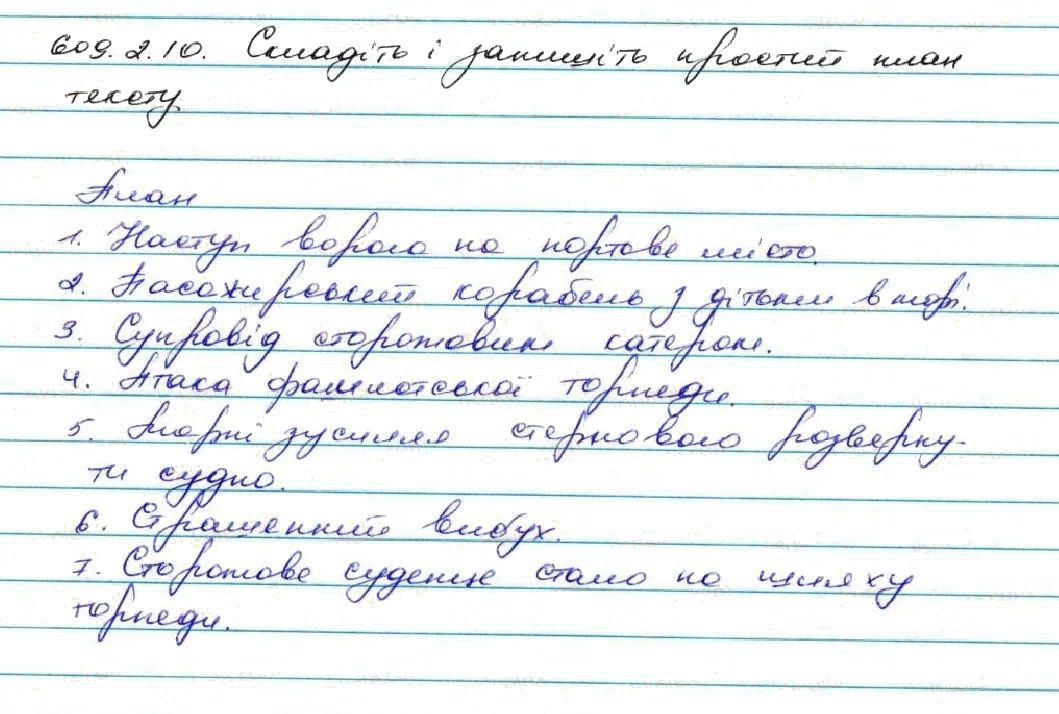 609.2.10. Складіть і запишіть простий план
тексту
План
1. Наступ ворога на портове місто.
2. Пасажирський корабель з дітьми в морі.
3. Супровід сторожовим катером.
4. Атака фашистської торпеди.
5. Марні зусилля стернового розверну-
ти судно.
6. Страшенний вибух.
7. Сторожове суденце стало на шляху
торпеди.